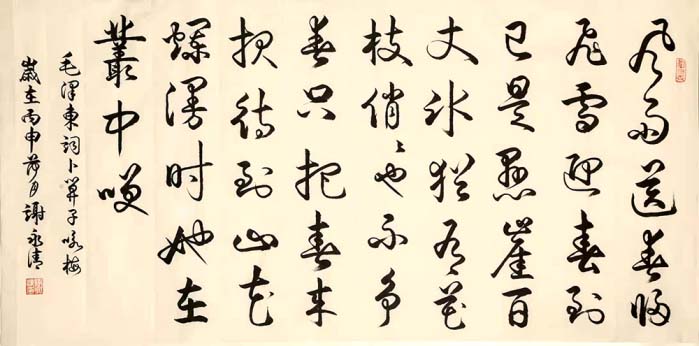 风雨送春归
飞雪迎春到
已是悬崖百
丈冰犹有花
枝俏〻也不争
春只把春来
报待到山花
烂漫时她在
叢中咲
毛泽東词卜算子咏梅
歲在丙申月谢永清